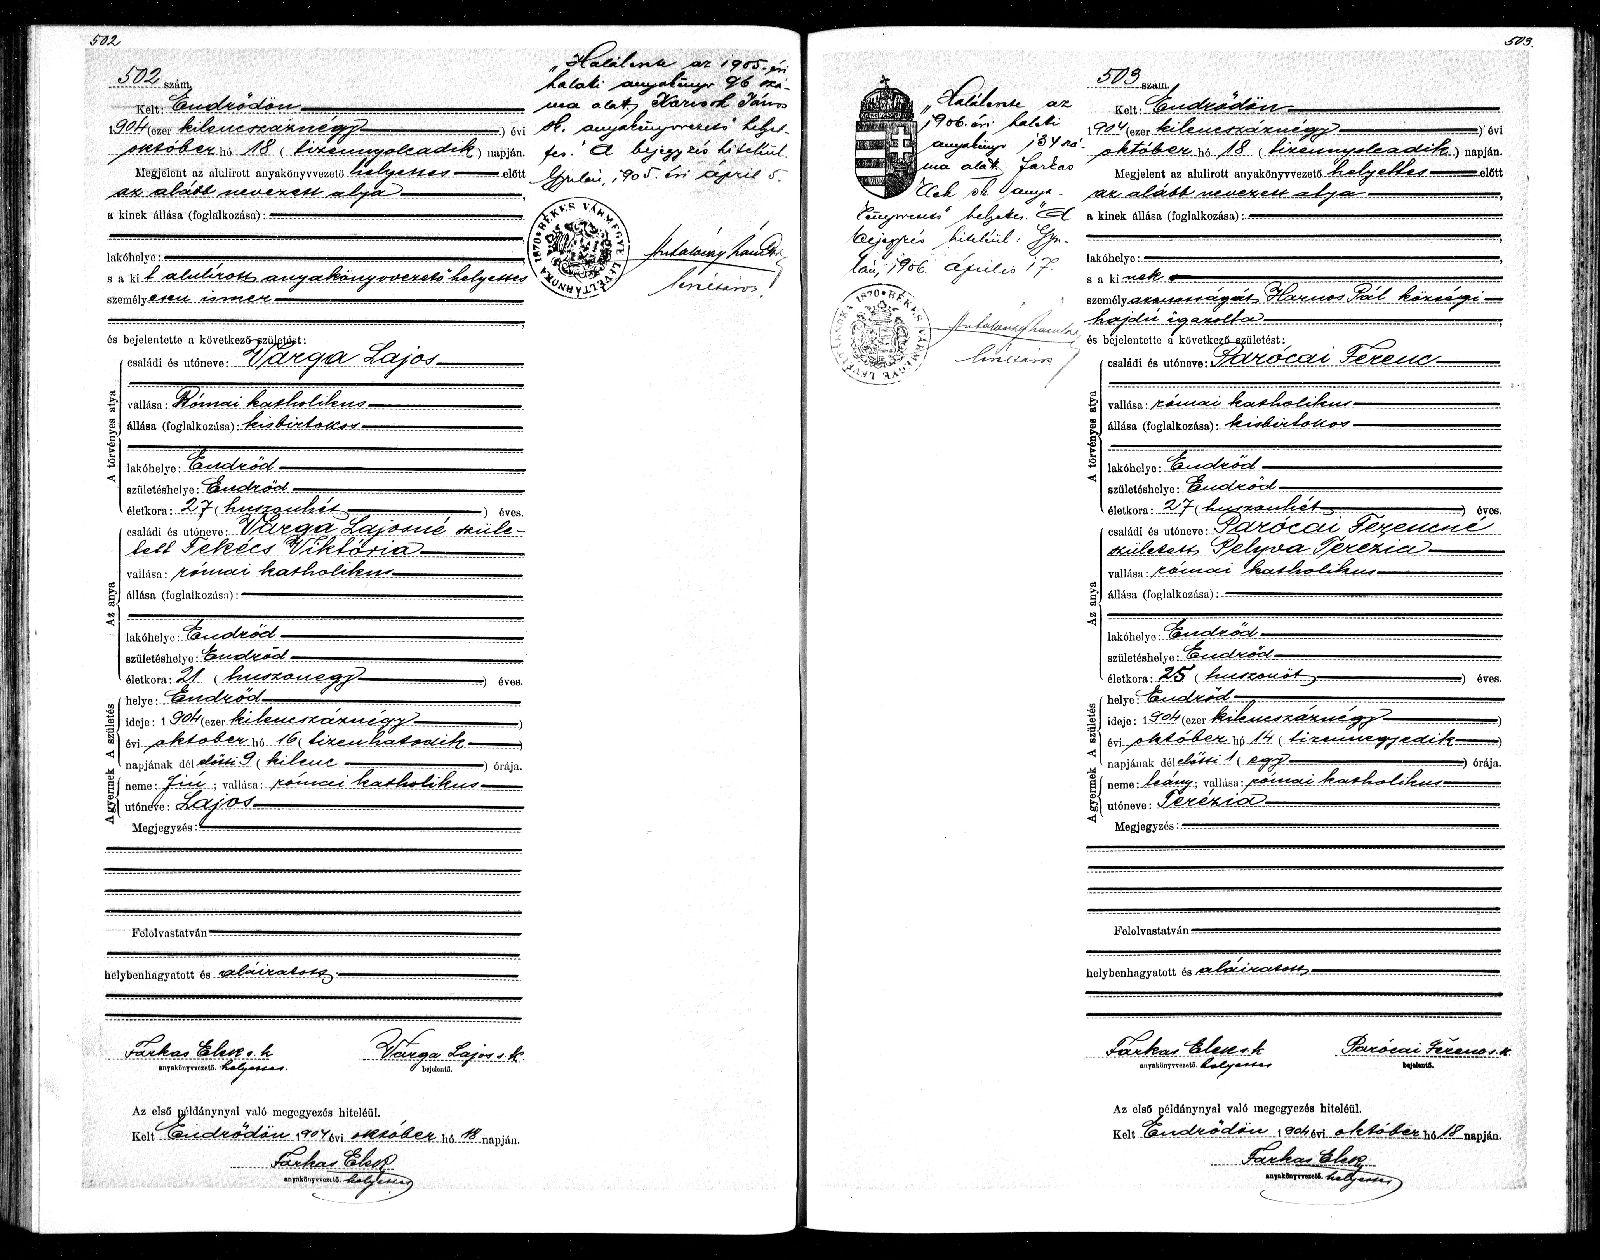 502
502 szám.
Kelt: Endrődön
1904 (ezer kilencszáznégy) évi
október hó 18 (tizennyolcadik) napján.
Megjelent az alulirott anyakönyvvezető helyettes előtt
az alább nevezett atya,
a kinek állása (foglalkozása):
lakóhelye:
s a kit alulirott anyakönyvvezető helyettes
személyesen ismer
és bejelentette a következő születést:
A törvényes atya
családi és utóneve: Varga Lajos
vallása: Római katholikus
állása (foglalkozása): kisbirtokos
lakóhelye: Endrőd
születéshelye: Endrőd
életkora: 27 (huszonhét) éves.
Az anya
családi és utóneve: Varga Lajosné szüle-
tett Fekécs Viktória
vallása: római katholikus
állása (foglalkozása):
lakóhelye: Endrőd
születéshelye: Endrőd
életkora: 21 (huszonegy) éves.
A születés
helye: Endrőd
ideje: 1904 (ezer kilencszáznégy)
évi október hó 16 (tizenhatodik)
napjának dél előtti 9 (kilenc) órája.
A gyermek
neme: fiú; vallása: római katholikus
utóneve: Lajos
Megjegyzés:
Felolvastatván
helybenhagyatott és aláiratott.
Farkas Elek s. k. Varga Lajos s. k.
anyakönyvvezető. helyettes. bejelentő.
Az első példánynyal való megegyezés hiteléül.
Kelt Endrődön 1904 évi október hó 18 napján.
Farkas Elek
anyakönyvvezető. helyettes
„Halálesete az 1905. évi
halotti anyakönyv 96 szá-
ma alatt, János
sk. anyakönyvvezető helyet-
tes." A bejegyzés hiteléül.
Gyulán, 1905. évi április 5.
BÉKÉS VÁRMEGYE LEVÉLTÁRNOKA 1870
levéltáros.
503.
503 szám.
Kelt: Endrődön
1904 (ezer kilencszáznégy) évi
október hó 18 (tizennyolcadik) napján.
Megjelent az alulirott anyakönyvvezető helyettes előtt
az alább nevezett atya,
a kinek állása (foglalkozása):
lakóhelye:
s a kinek
személyazonosságát Harnos Pál községi
hajdú igazolta,
és bejelentette a következő születést:
A törvényes atya
családi és utóneve: Parócai Ferenc
vallása: római katholikus
állása (foglalkozása): kisbirtokos
lakóhelye: Endrőd
születéshelye: Endrőd
életkora: 27 (huszonhét) éves.
Az anya
családi és utóneve: Parócai Ferencné
született Pelyva Terézia
vallása: római katholikus
állása (foglalkozása):
lakóhelye: Endrőd
születéshelye: Endrőd
életkora: 25 (huszonöt) éves.
A születés
helye: Endrőd
ideje: 1904 (ezer kilencszáznégy)
évi október hó 14 (tizennegyedik)
napjának dél előtti 1 (egy) órája.
A gyermek
neme: leány; vallása: római katholikus
utóneve: Terézia
Megjegyzés:
Felolvastatván
helybenhagyatott és aláiratott
Farkas Elek s. k. Parócai Ferenc s. k.
anyakönyvvezető. helyettes bejelentő.
Az első példánynyal való megegyezés hiteléül.
Kelt Endrődön 1904 évi október hó 18 napján.
Farkas Elek
anyakönyvvezető. helyettes
„Halálesete az
1906. évi halotti
anyakönyv 134 szá-
ma alatt, Farkas
Elek sk. anya-
könyvvezető helyettes." A
bejegyzés hiteléül. Gyu-
lán, 1906. április 17.
BÉKÉS VÁRMEGYE LEVÉLTÁRNOKA 1870
levéltáros